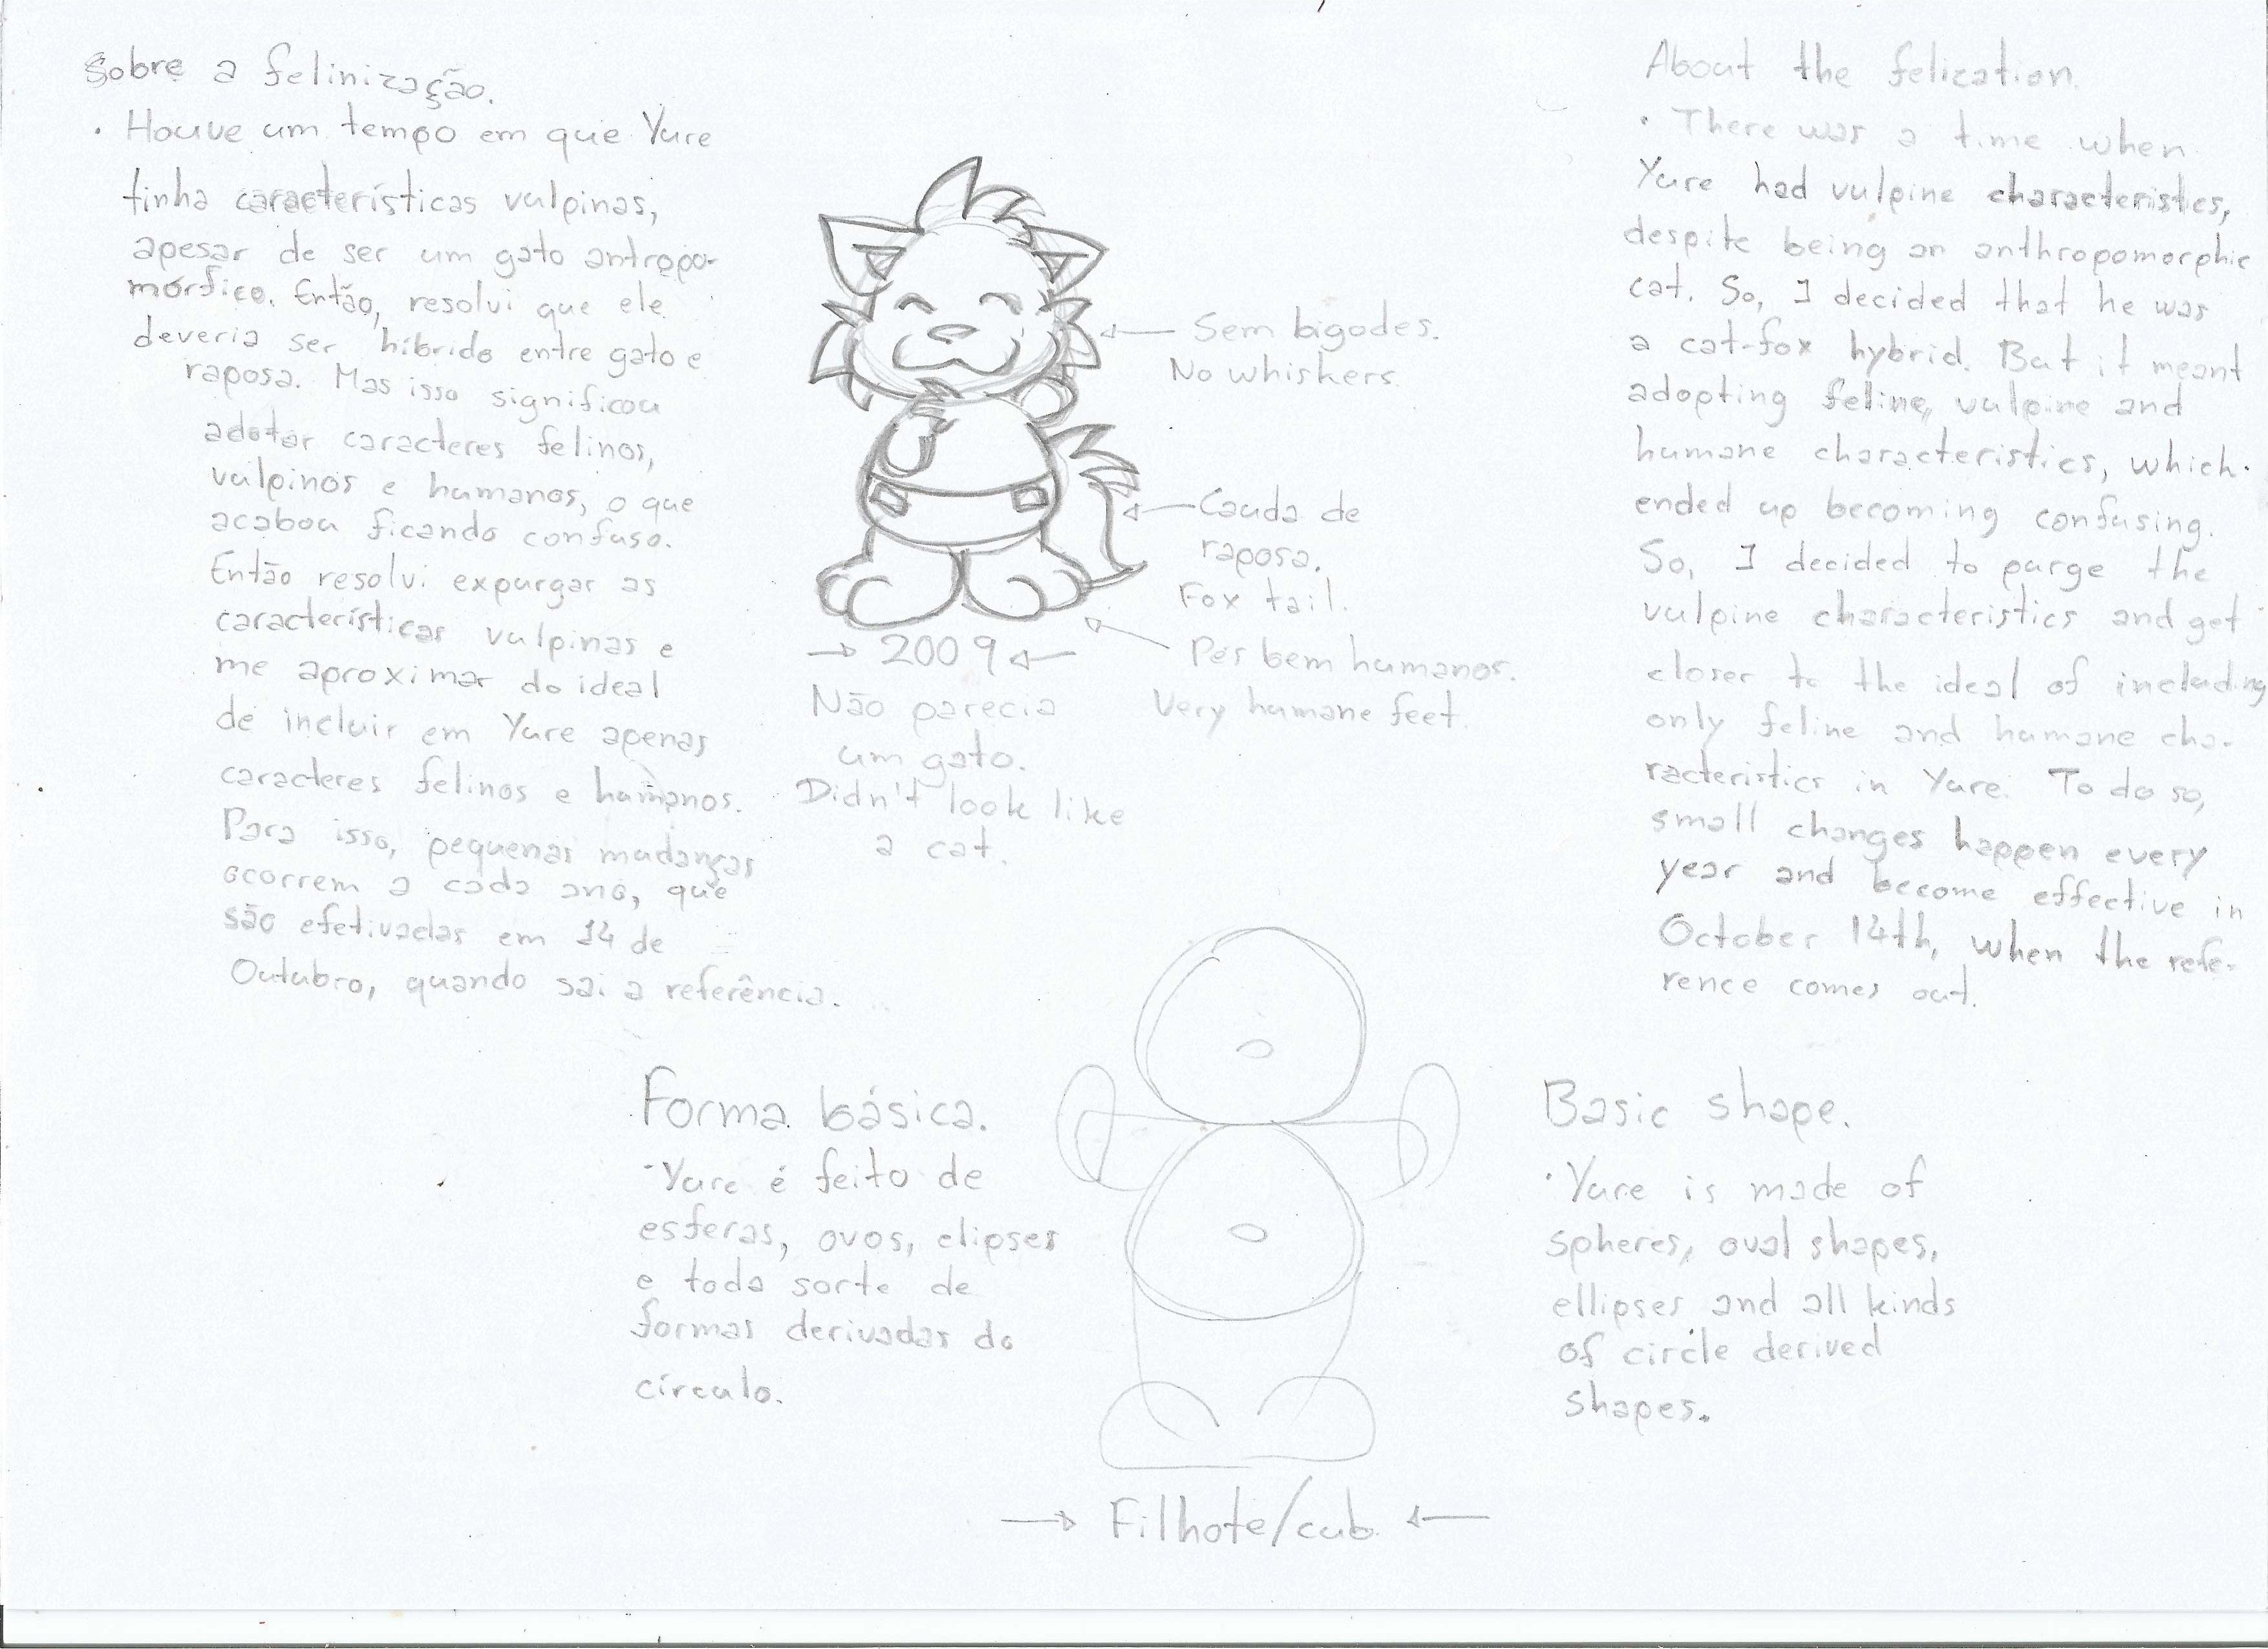 Sobre a felinização.
· Houve um tempo em que Yure
tinha características vulpinas,
apesar de ser um gato antropo-
mórfico. Então, resolvi que ele
deveria ser híbrido entre gato e
raposa. Mas isso significou
adotar caracteres felinos,
vulpinos e humanos, o que
acabou ficando confuso.
Então resolvi expurgar as
características vulpinas e
me aproximar do ideal
de incluir em Yure apenas
caracteres felinos e humanos.
Para isso, pequenas mudanças
ocorrem a cada ano, que
são efetivadas em 14 de
Outubro, quando sai a referência.
Sem bigodes.
No whiskers.
Cauda de
raposa.
Fox tail.
Pés bem humanos.
Very humane feet.
2009
Não parecia
um gato.
Didn't look like
a cat.
About the felization.
· There was a time when
Yure had vulpine characteristics,
despite being an anthropomorphic
cat. So, I decided that he was
a cat-fox hybrid. But it meant
adopting feline, vulpine and
humane characteristics, which
ended up becoming confusing.
So, I decided to purge the
vulpine characteristics and get
closer to the ideal of including
only feline and humane cha-
racteristics in Yure. To do so,
small changes happen every
year and become effective in
October 14th, when the refe-
rence comes out.
Forma básica.
· Yure é feito de
esferas, ovos, elipses
e toda sorte de
formas derivadas do
círculo.
Basic shape.
· Yure is made of
spheres, oval shapes,
ellipses and all kinds
of circle derived
shapes.
Filhote/cub